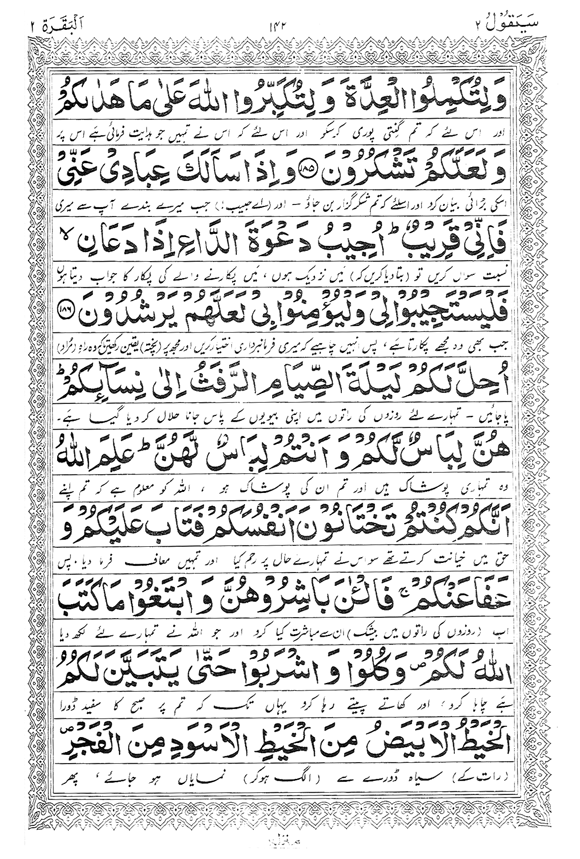 سَيَقُولُ ٢ ١٤٢ اَلْبَقَرَة ٢
وَلِتُكْمِلُوا الْعِدَّةَ وَلِتُكَبِّرُوا اللهَ عَلٰى مَا هَدٰىكُمْ
اور اس لئے کہ تم گنتی پوری کر سکو اور اس لئے کہ اس نے تمہیں جو ہدایت فرمائی ہے اس پر
وَلَعَلَّكُمْ تَشْكُرُوْنَ ﴿١٨٥﴾ وَاِذَا سَاَلَكَ عِبَادِىْ عَنِّىْ
اسکی بڑائی بیان کرو اور اسلئے کہ تم شکر گزار بن جاؤ - اور (اے حبیب!) جب میرے بندے آپ سے میری
فَاِنِّىْ قَرِيْبٌ ؕ اُجِيْبُ دَعْوَةَ الدَّاعِ اِذَا دَعَانِ ۙ
نسبت سوال کریں تو (بتا دیا کریں کہ) میں نزدیک ہوں، میں پکارنے والے کی پکار کا جواب دیتا ہوں
فَلْيَسْتَجِيْبُوْا لِىْ وَلْيُؤْمِنُوْا بِىْ لَعَلَّهُمْ يَرْشُدُوْنَ ﴿١٨٦﴾
جب بھی وہ مجھے پکارتا ہے، پس انہیں چاہیے کہ میری فرمانبرداری اختیار کریں اور مجھ پر (پختہ) یقین رکھیں تاکہ وہ راہِ (مراد)
اُحِلَّ لَكُمْ لَيْلَةَ الصِّيَامِ الرَّفَثُ اِلٰى نِسَآئِكُمْ ؕ
پا جائیں - تمہارے لئے روزوں کی راتوں میں اپنی بیویوں کے پاس جانا حلال کر دیا گیا ہے،
هُنَّ لِبَاسٌ لَّكُمْ وَاَنْتُمْ لِبَاسٌ لَّهُنَّ ؕ عَلِمَ اللهُ
وہ تمہاری پوشاک ہیں اور تم ان کی پوشاک ہو، اللہ کو معلوم ہے کہ تم اپنے
اَنَّكُمْ كُنْتُمْ تَخْتَانُوْنَ اَنْفُسَكُمْ فَتَابَ عَلَيْكُمْ وَ
حق میں خیانت کرتے تھے سو اس نے تمہارے حال پر رحم کیا اور تمہیں معاف فرما دیا، پس
عَفَا عَنْكُمْ ۚ فَالْـٰٔنَ بَاشِرُوْهُنَّ وَابْتَغُوْا مَا كَتَبَ
اب (روزوں کی راتوں میں بیشک) ان سے مباشرت کیا کرو اور جو اللہ نے تمہارے لئے لکھ دیا
اللهُ لَكُمْ ۪ وَكُلُوْا وَاشْرَبُوْا حَتّٰى يَتَبَيَّنَ لَكُمُ
ہے چاہا کرو، اور کھاتے پیتے رہا کرو یہاں تک کہ تم پر صبح کا سفید ڈورا
الْخَيْطُ الْاَبْيَضُ مِنَ الْخَيْطِ الْاَسْوَدِ مِنَ الْفَجْرِ ۪
(رات کے) سیاہ ڈورے سے (الگ ہو کر) نمایاں ہو جائے، پھر